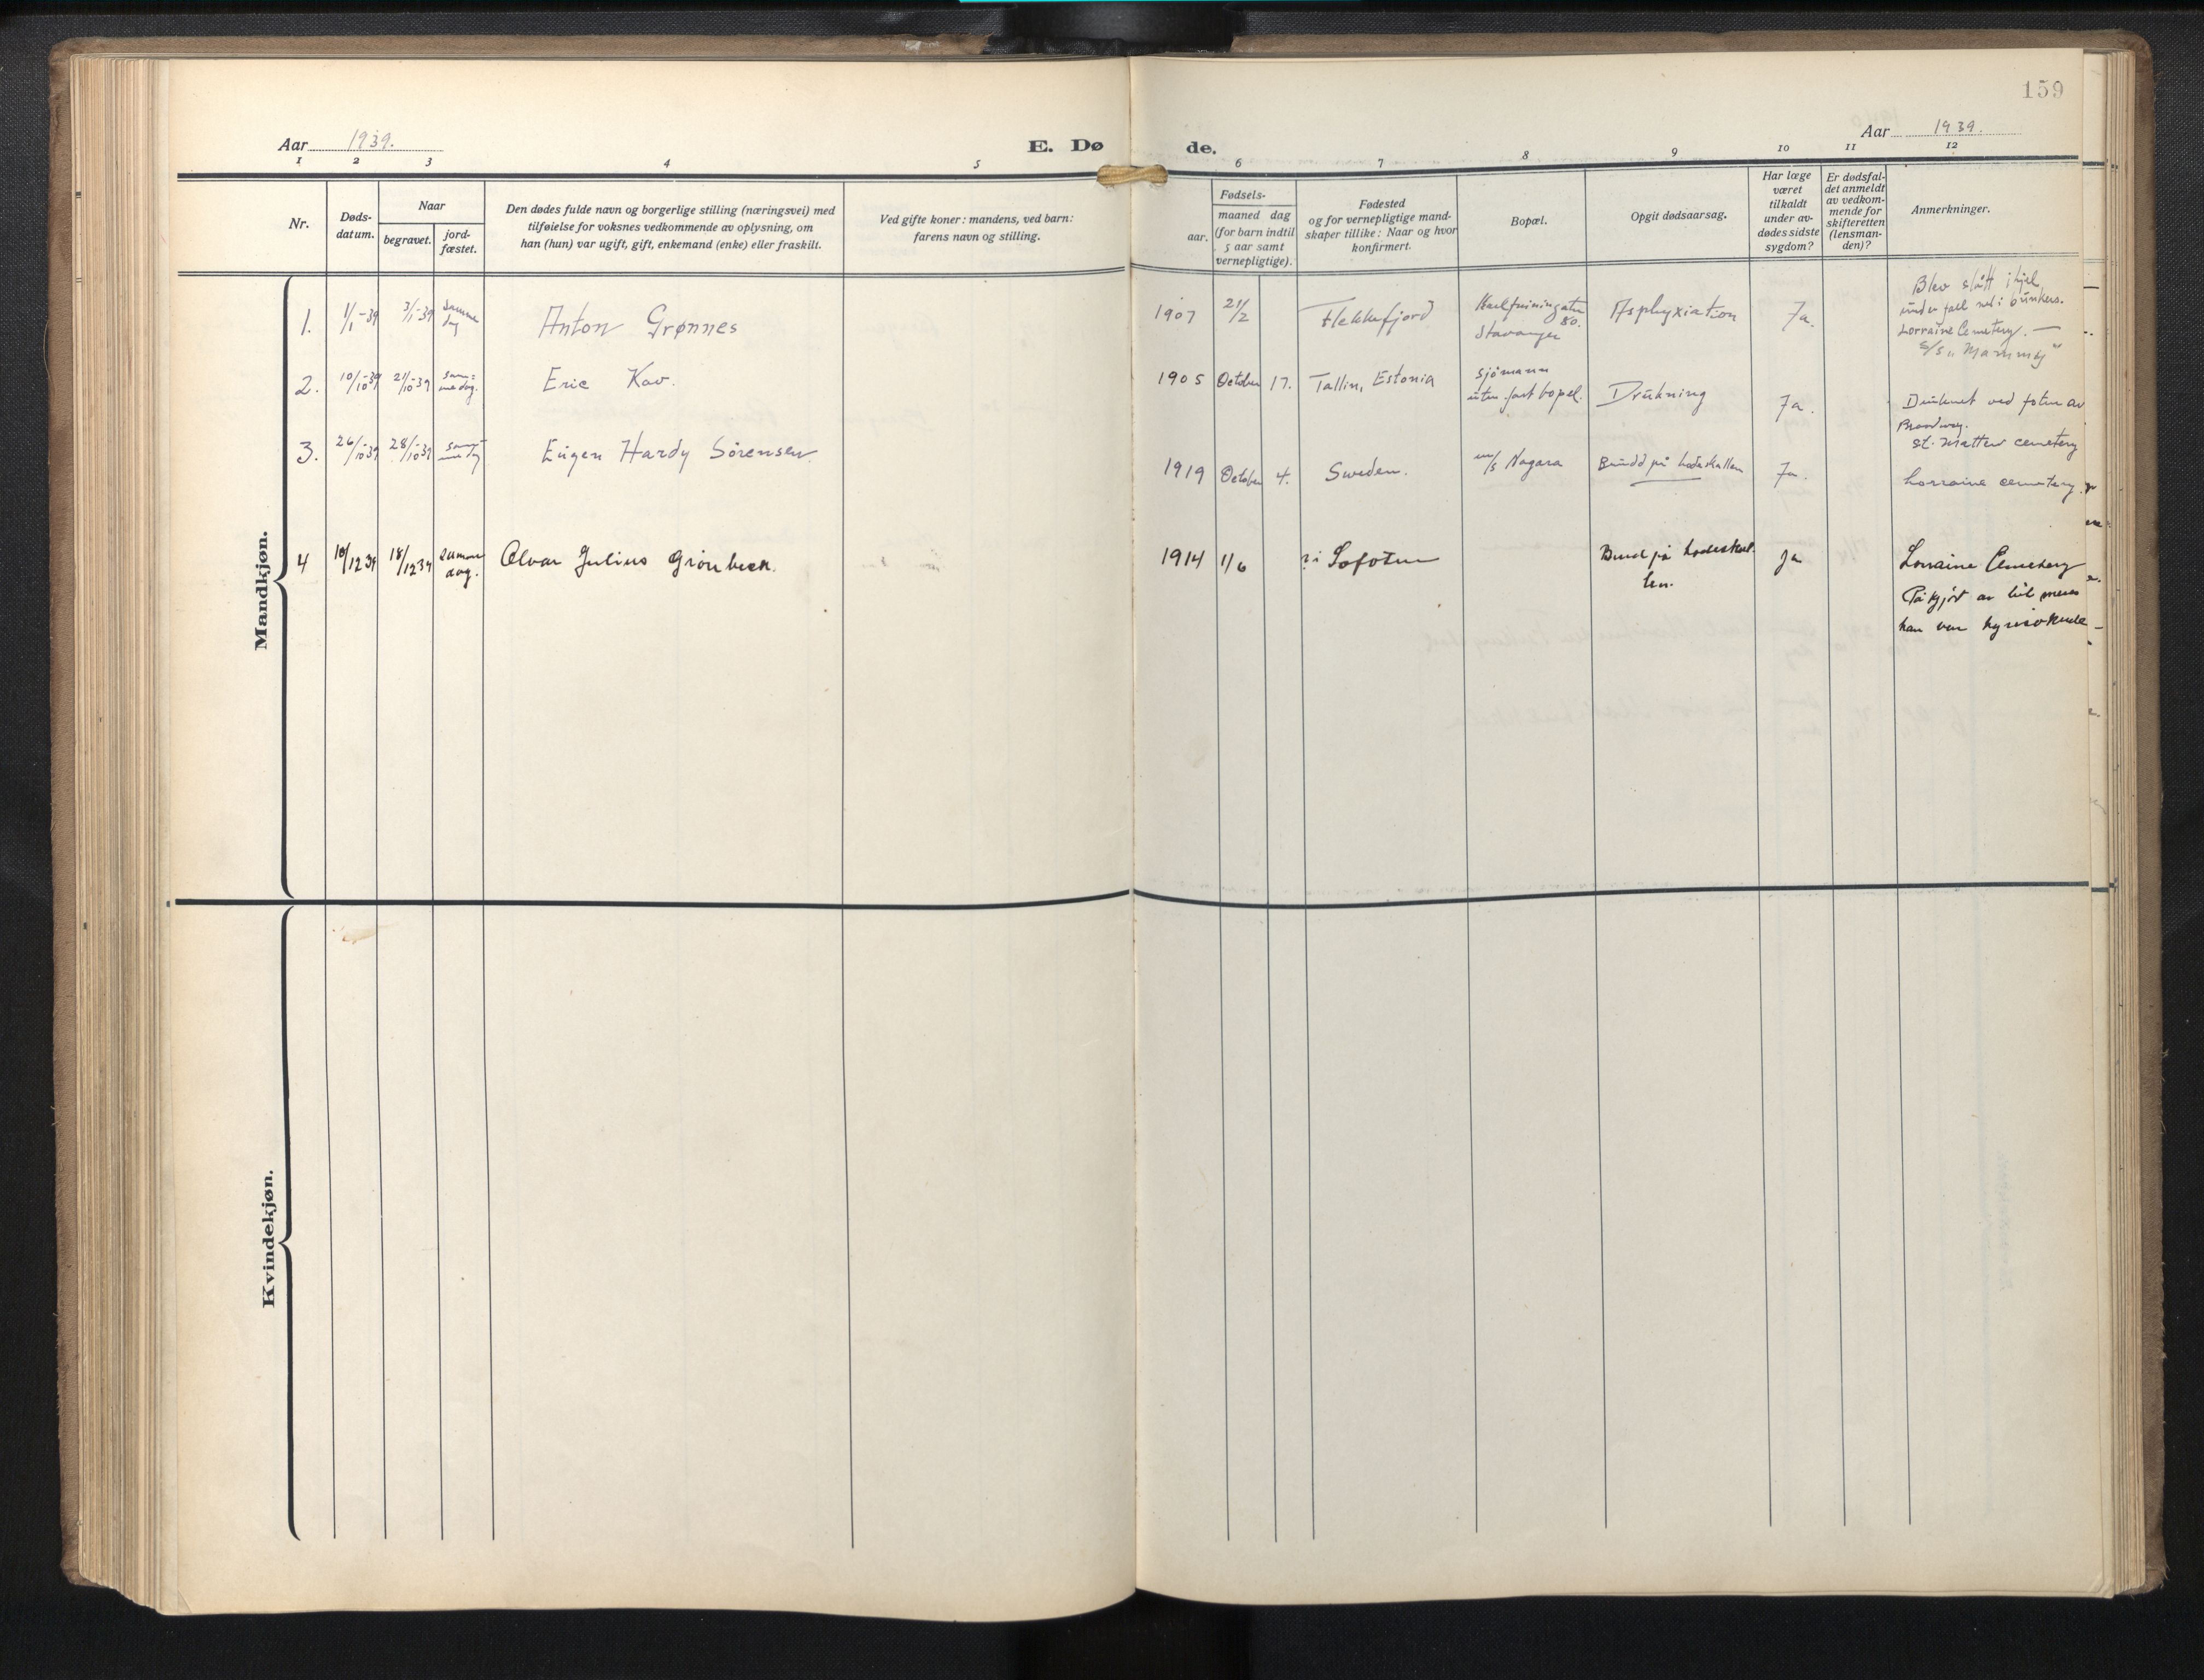 159
Aar 1939.
E. Dø
de.
Aar 1939.
1 2 3 4 5 6 7 8 9 10 11 12
Nr.
Døds-
datum.
Naar
begravet.
jord-
fæstet.
Den dødes fulde navn og borgerlige stilling (næringsvei) med
tilføielse for voksnes vedkommende av oplysning, om
han (hun) var ugift, gift, enkemand (enke) eller fraskilt.
Ved gifte koner: mandens, ved barn:
farens navn og stilling.
Fødsels-
aar.
maaned dag
(for barn indtil
5 aar samt
vernepligtige).
Fødested
og for vernepligtige mand-
skaper tillike: Naar og hvor
konfirmert.
Bopæl.
Opgit dødsaarsag.
Har læge
været
tilkaldt
under av-
dødes sidste
sygdom?
Er dødsfal-
det anmeldt
av vedkom-
mende for
skifteretten
(lensman-
den)?
Anmerkninger.
Mandkjøn.
1.
1/1-39
3/1-39
Samme
dag
Anton Grønnes
1907
21/2
Flekkefjord
80.
Stavanger
Asphyxiation
Ja.
Blev slått ihjel
under fall ned i bunkers.
Lorraine Cemetery. —
S/S
2.
10/10-39
21/10-39
sam=
me dag.
Eric Kav.
1905
October 17.
Tallin, Estonia
sjömann
uten fast bopel.
Drukning
Ja.
Druknet ved foten av
Broadway.
St. Mattew cemetery
3.
26/10-39
28/10-39
sam-
me dag
Eugen Hardy Sörensen.
1919
October 4.
Sweden.
m/s Nagara
Brudd på hodeskallen
Ja.
Lorraine cemetery.
4
18/12 39
Samme
dag.
Alvar Julius Grönbeck.
1914
1/6
i Lofoten
Brud på hodeskal-
len.
Ja
Lorraine Cemetery
Påkjørt av bil mens
han var
Kvindekjøn.